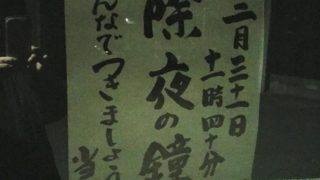 二月三十一日
十一時四十分
除夜の鐘
んなでつきましょう
当